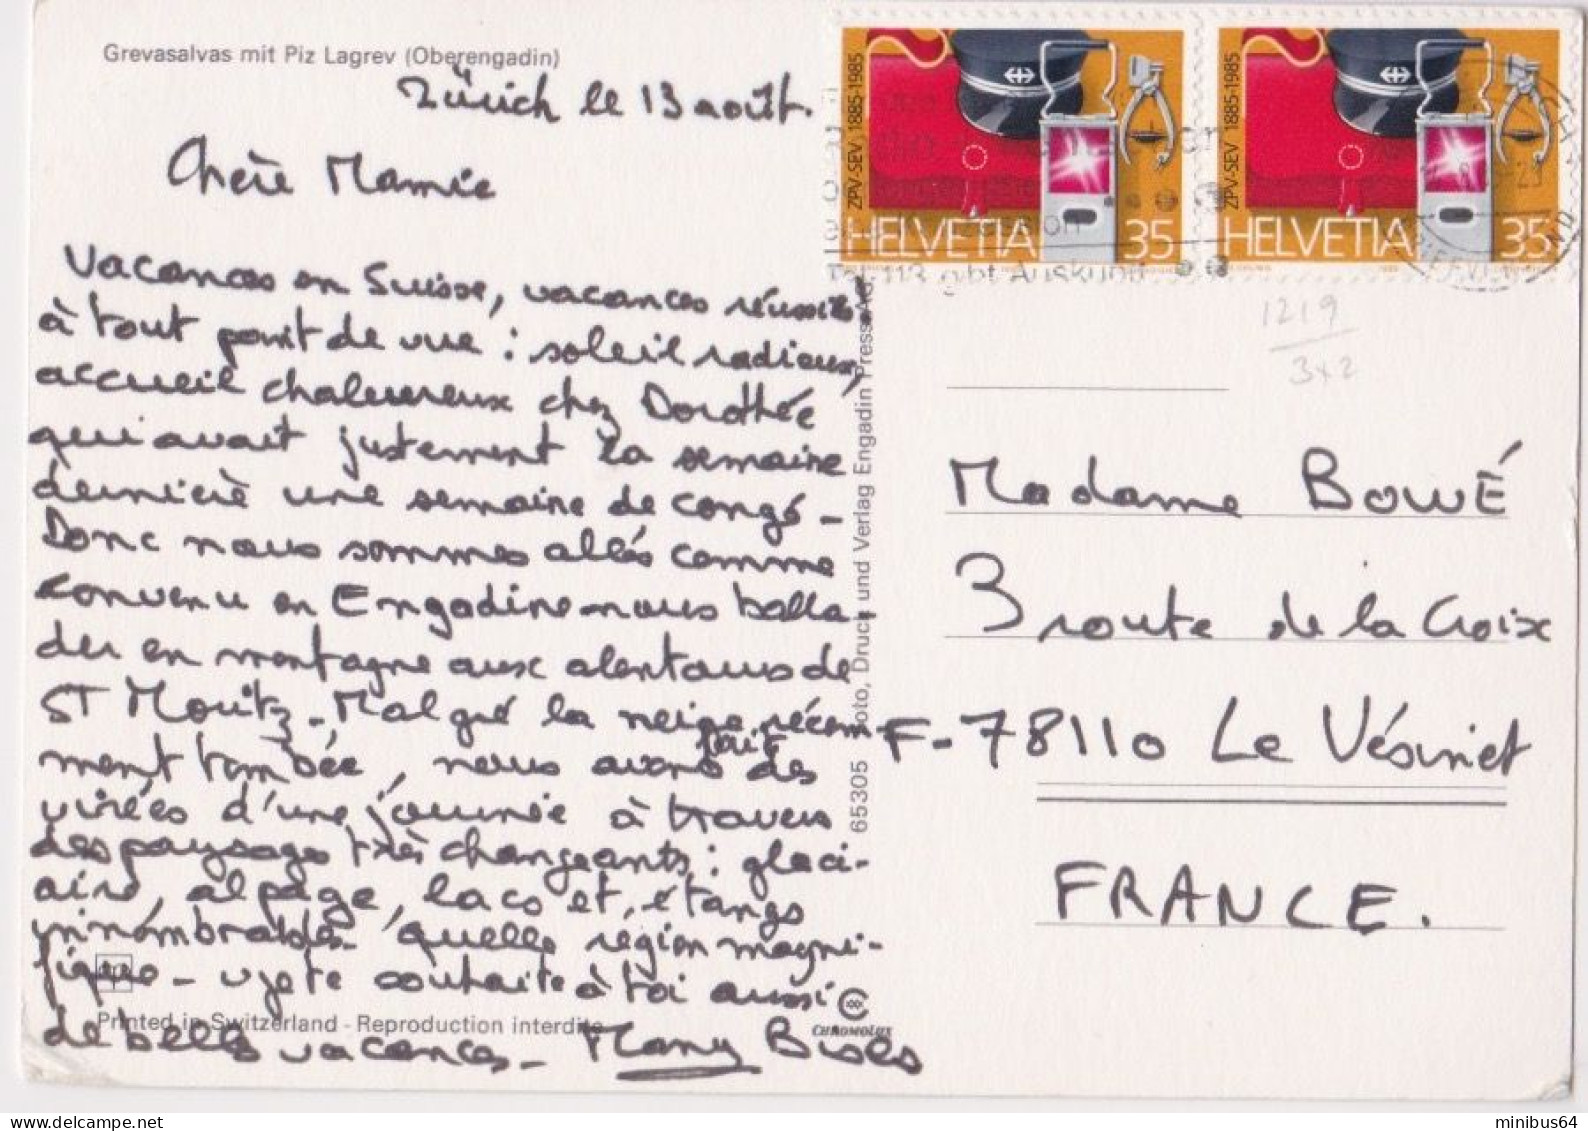 Grevasalvas mit Piz Lagrev (Oberengadin)
Zürich le 13 août.
Chère Mamie
Vacances en Suisse, vacances réussies
à tout point de vue : soleil radieux,
accueil chaleureux chez Dorothée
qui avait justement la semaine
dernière une semaine de congé -
Donc nous sommes allés comme
convenu en Engadine nous balla-
der en montagne aux alentours de
ST Moritz - Malgré la neige récem
ment tombée, nous avons fait des
virées d'une journée à travers
des paysages très changeants : glaci-
aire, alpage, lacs et étangs
innombrables - quelle région magni-
fique - je te souhaite à toi aussi
de belles vacances -
Printed in Switzerland - Reproduction interdite
CHROMOLUX
65305 Foto, Druck und Verlag Engadin Press AG,
ZPV-SEV 1885-1985
HELVETIA 35
ZPV-SEV 1885-1985
HELVETIA 35
Tel. 113 gibt Auskunft
1219
3x2
Madame BOWÉ
3 route de la Croix
F-78110 Le Vésinet
FRANCE.
minibus64